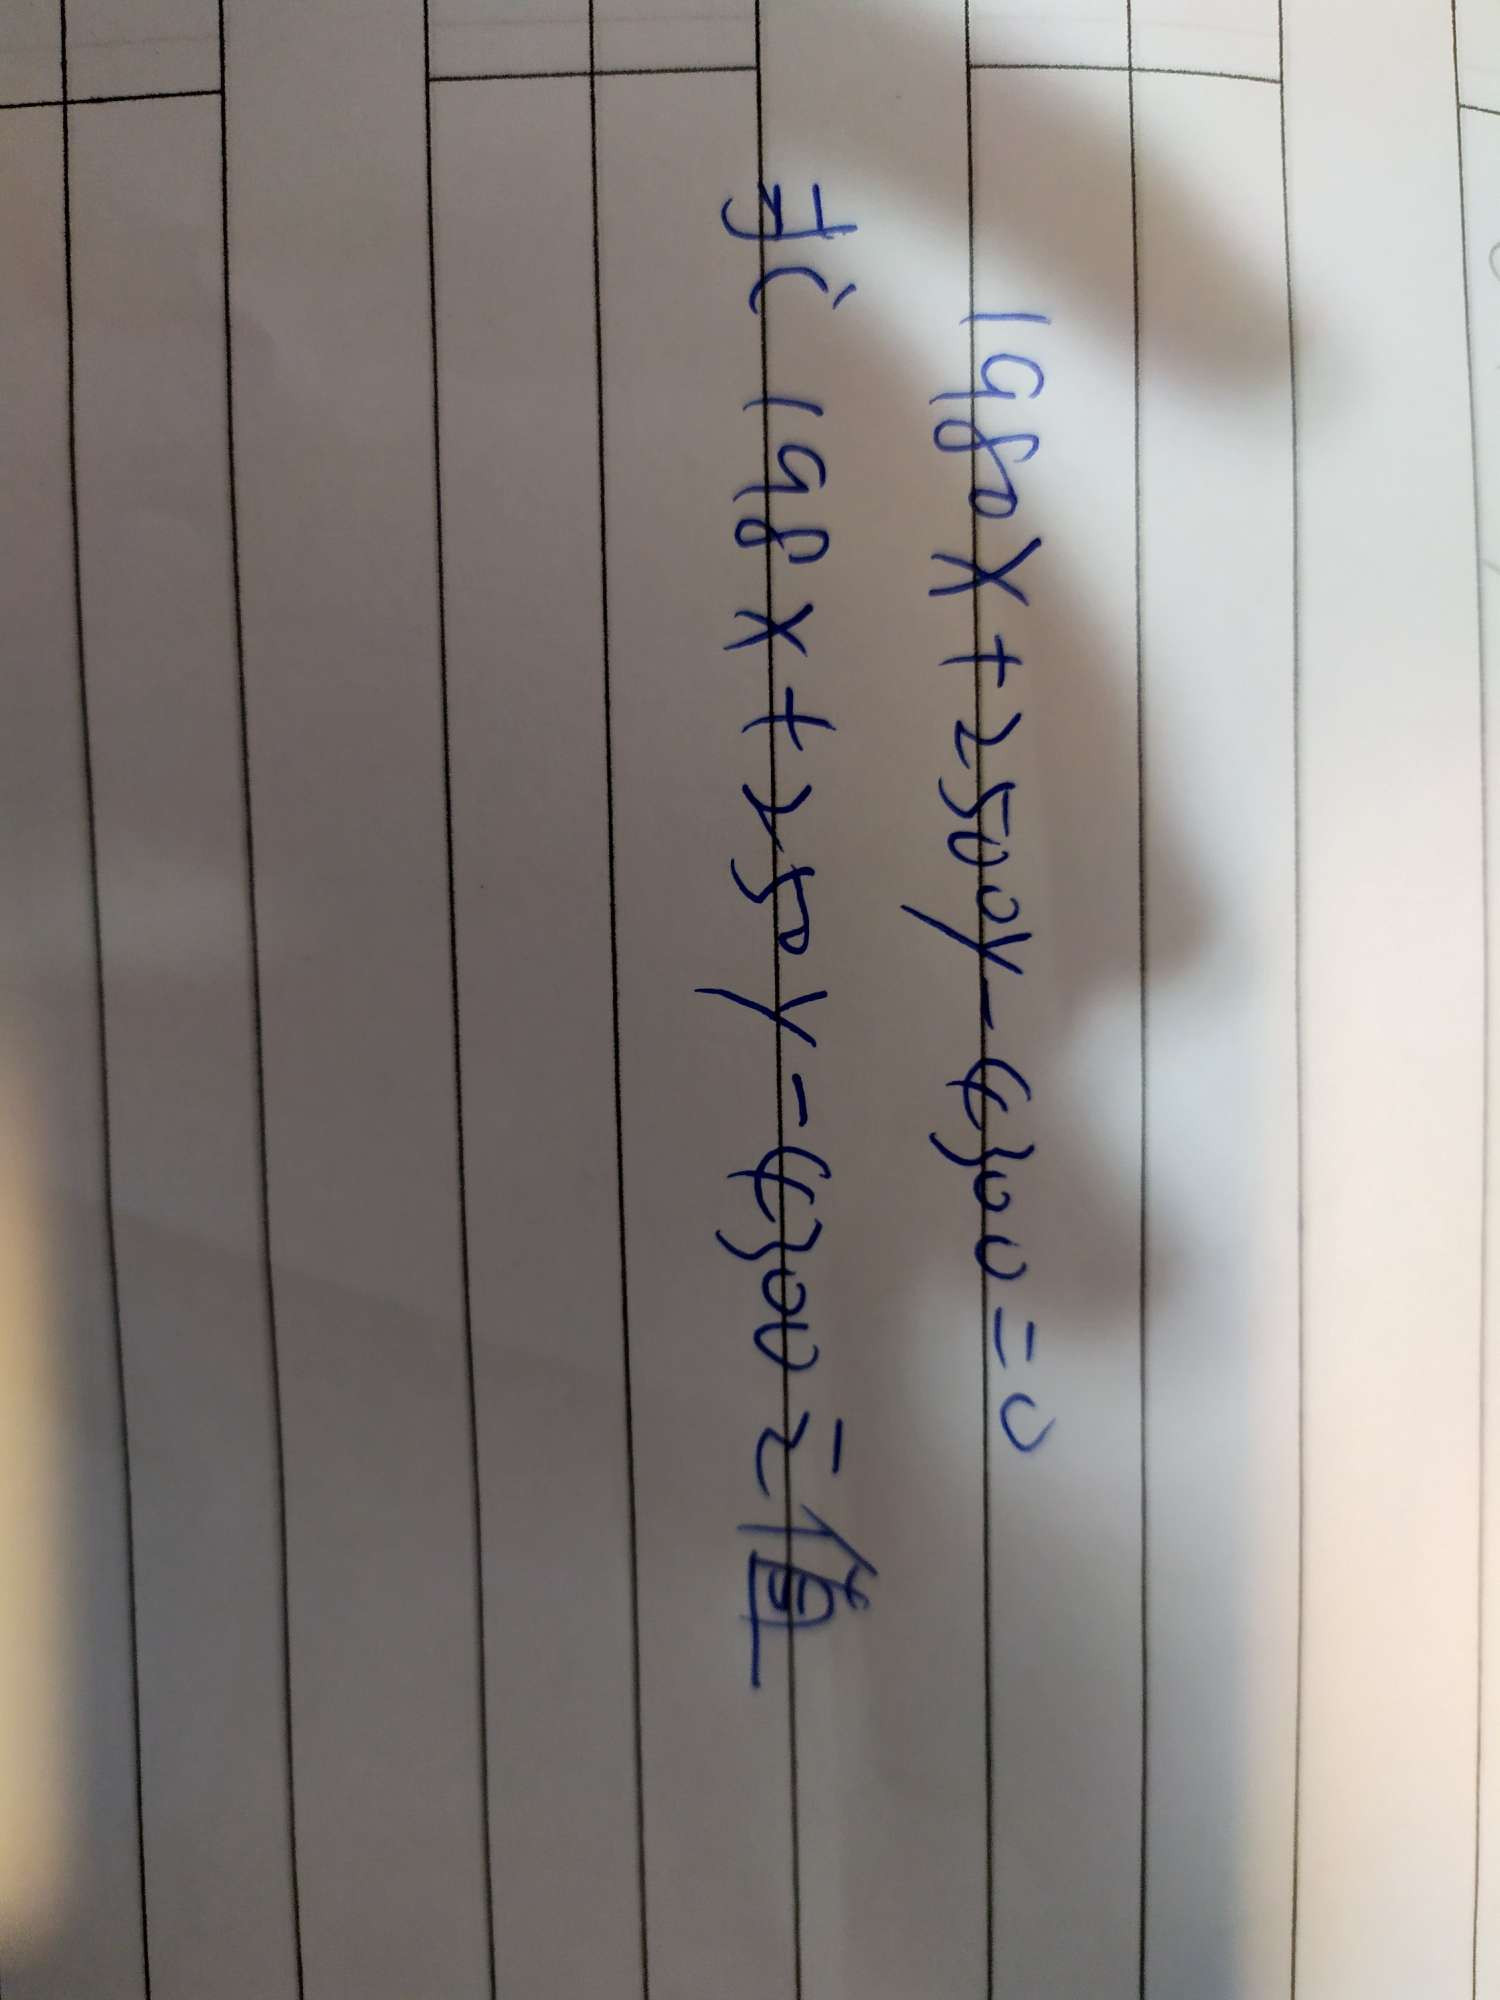 1980X+2500y-4300=0
求198X+250y-4300之值